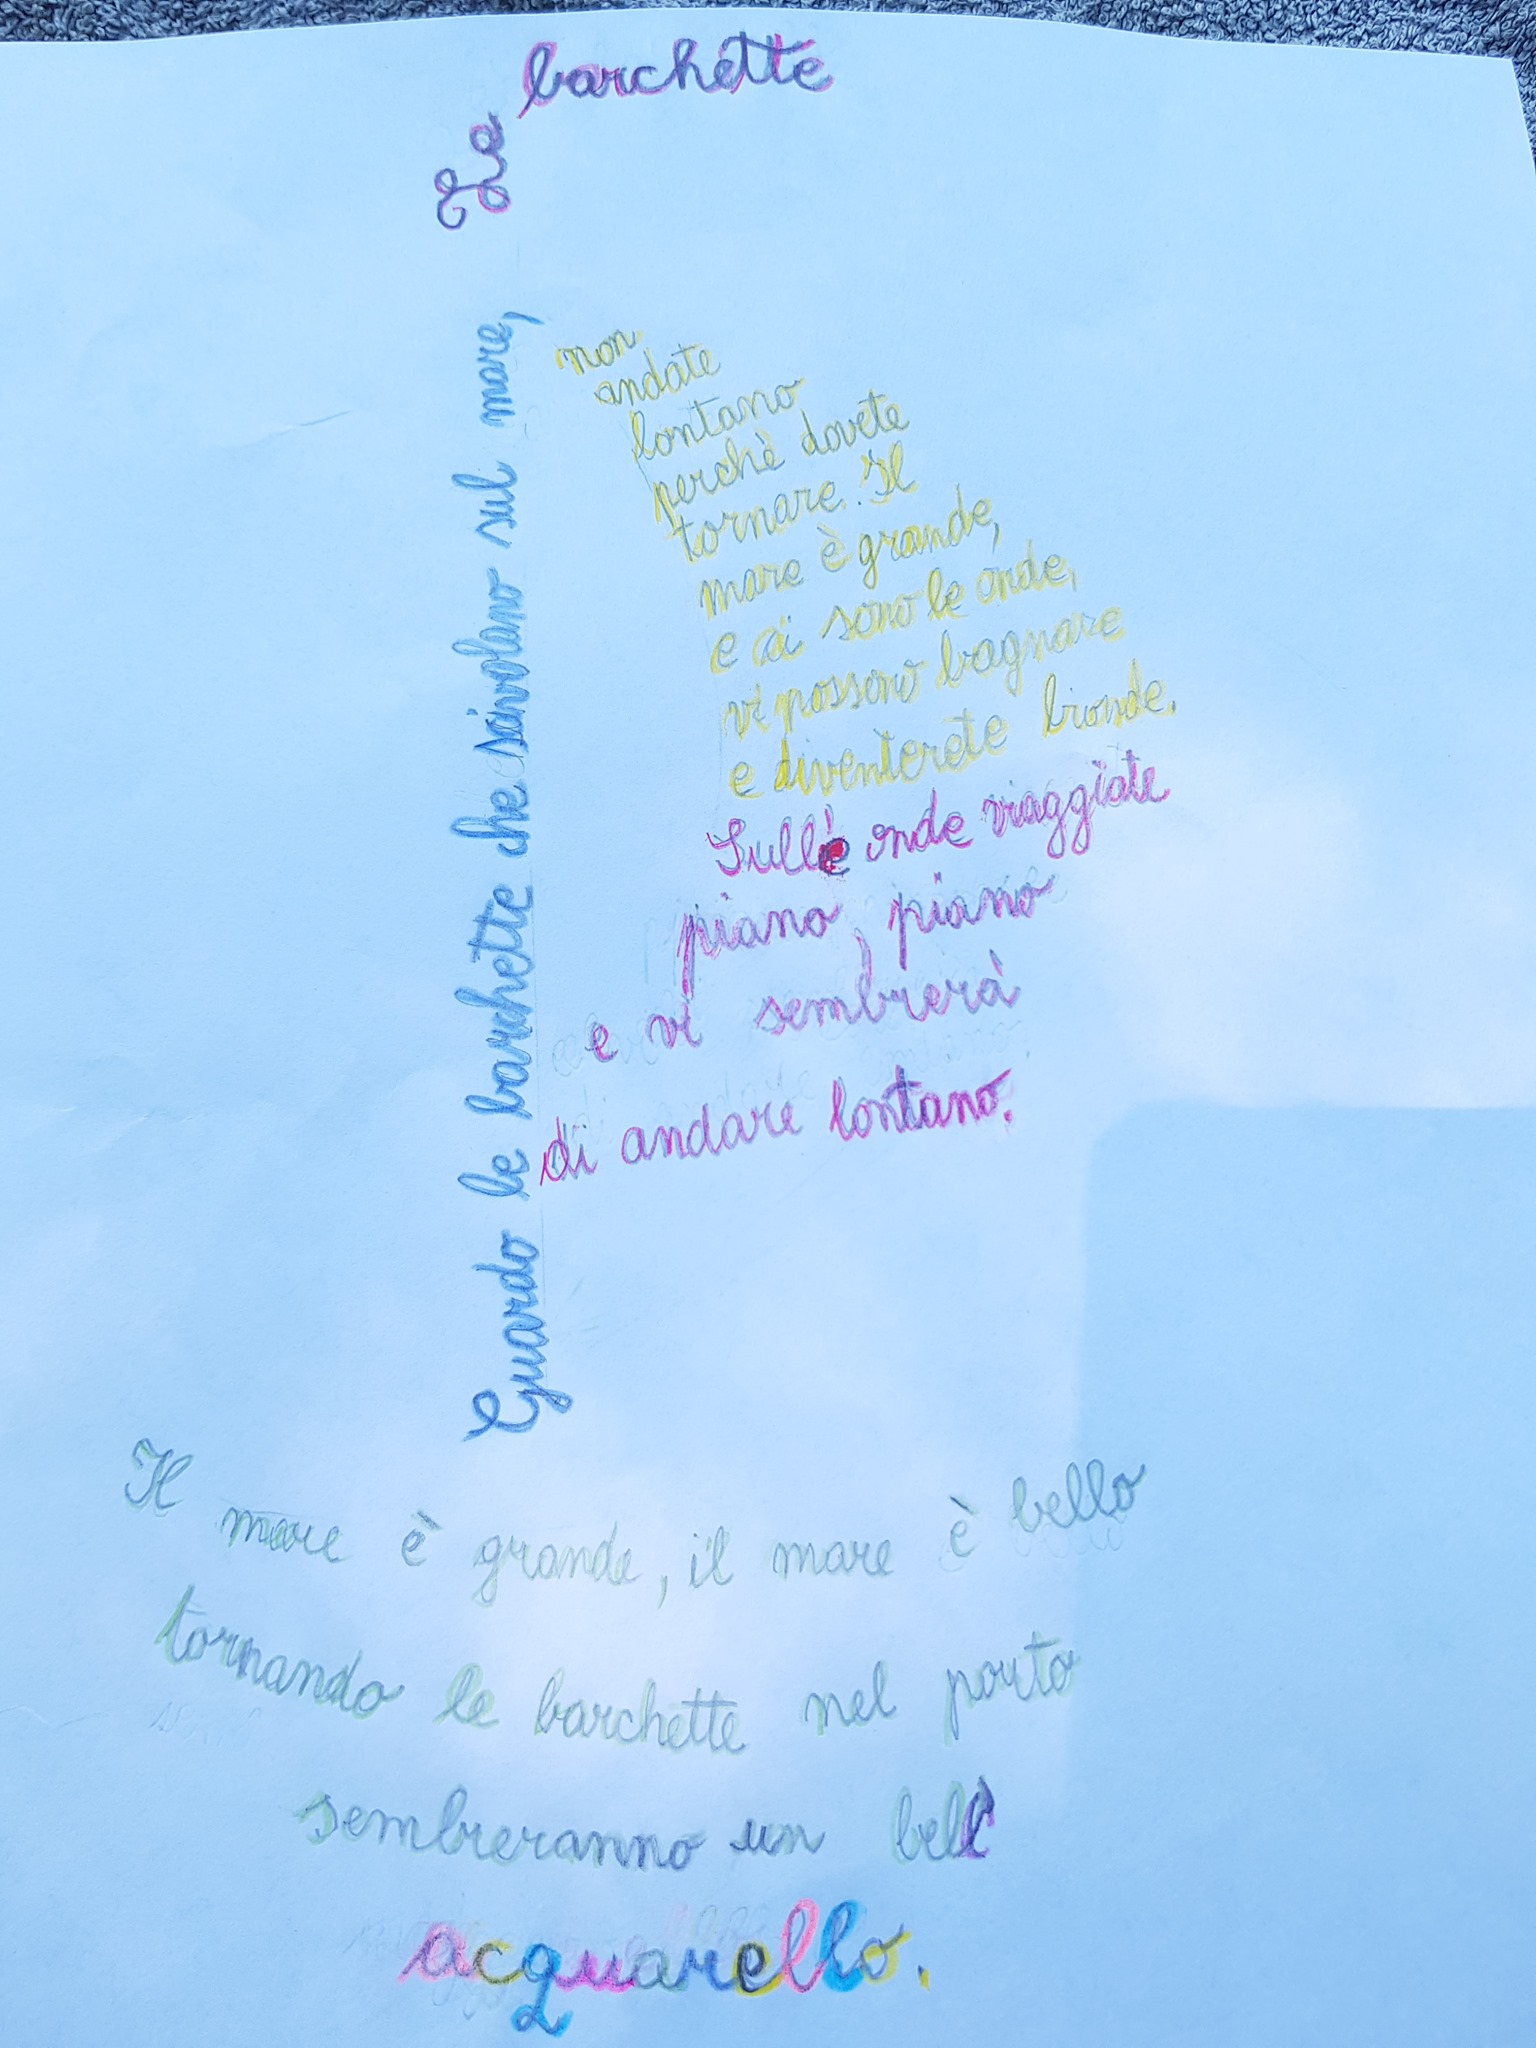 Le barchette
Guardo le barchette che sivolano sul mare,
non
andate
lontano
perchè dovete
tornare. Il
mare è grande,
e ci sono le onde,
vi possono bagnare
e diventerete bionde.
Sulle onde viaggiate
piano, piano
e vi sembrerà
di andare lontano.
Il mare è grande, il mare è bello
tornando le barchette nel porto
sembreranno un bell'
acquarello.